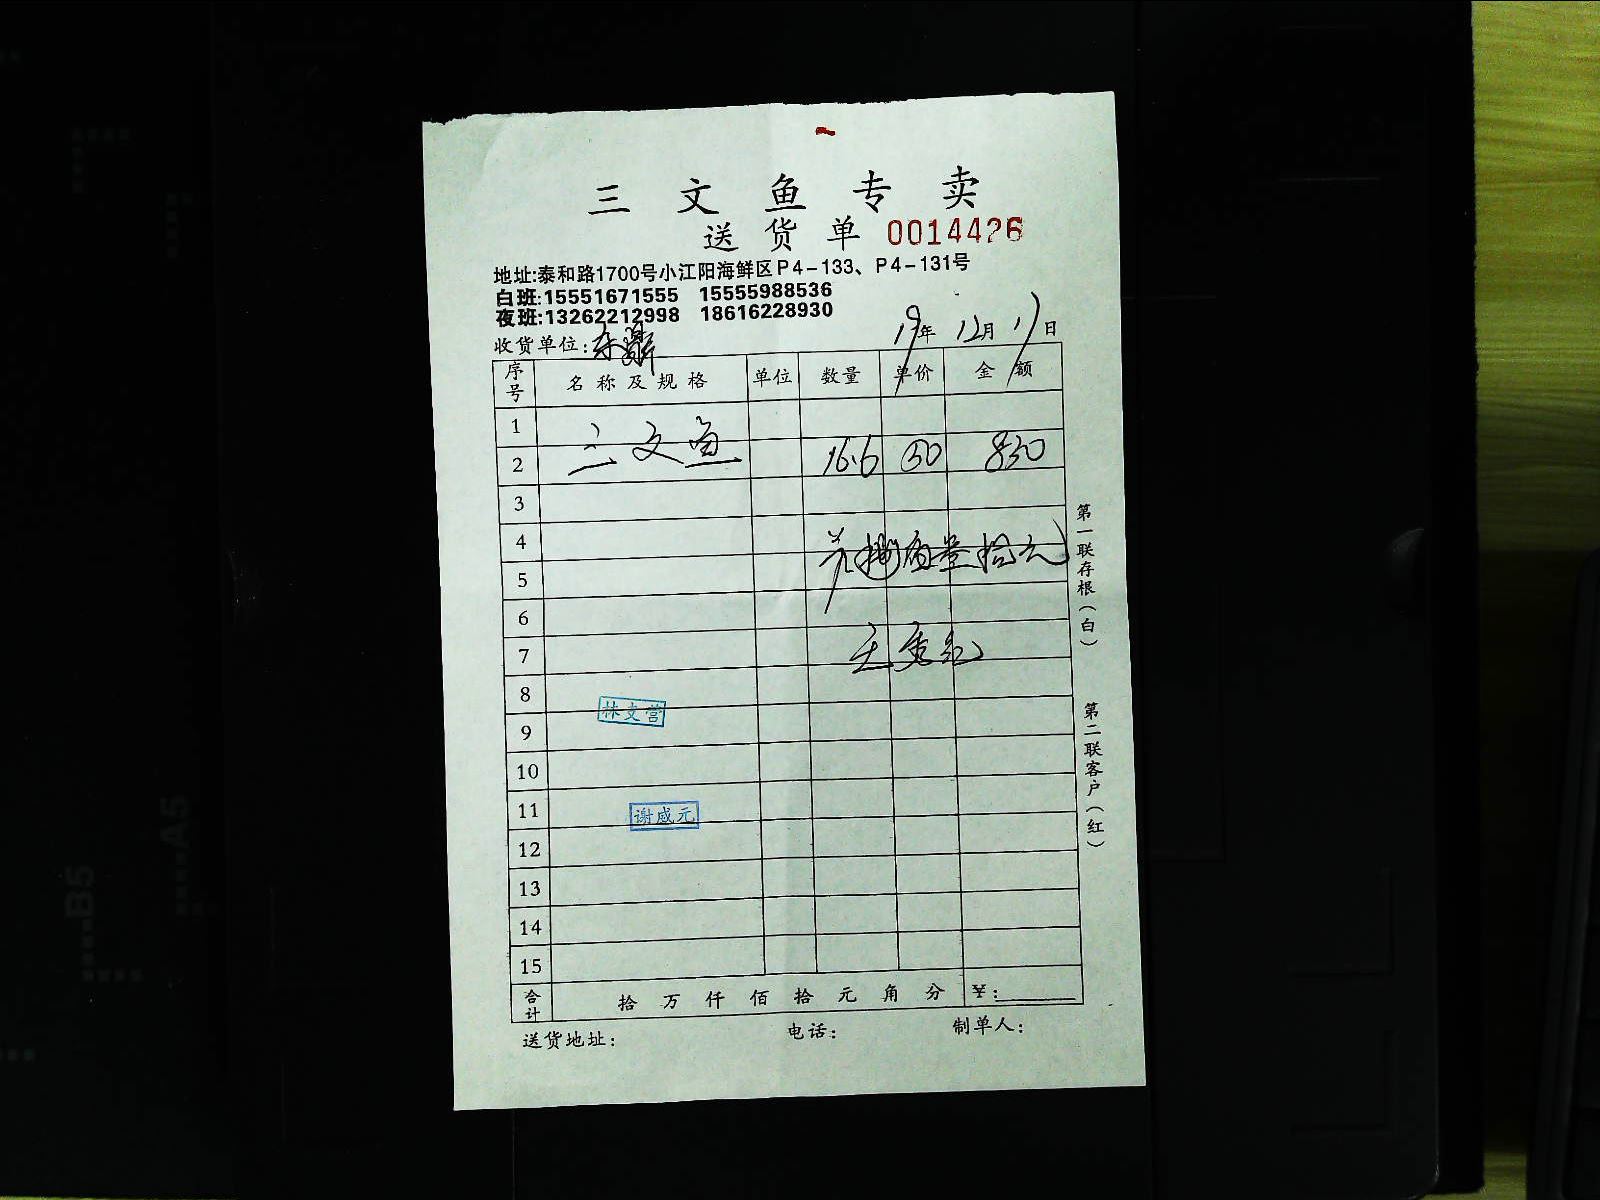 三文鱼专卖
送货单 0014426
地址:泰和路1700号小江阳海鲜区P4-133、P4-131号
白班:15551671555 15555988536
夜班:13262212998 18616228930
收货单位: 19年12月17日
序号 名称及规格 单位 数量 单价 金额
1
2 三文鱼 16.6 50 830
3
4
5 捌佰叁拾元
6
7
8
9 林文营
10
11 谢感元
12
13
14
15
合计 拾万仟佰拾元角分 ¥:
送货地址: 电话: 制单人:
第一联存根(白)
第二联客户(红)